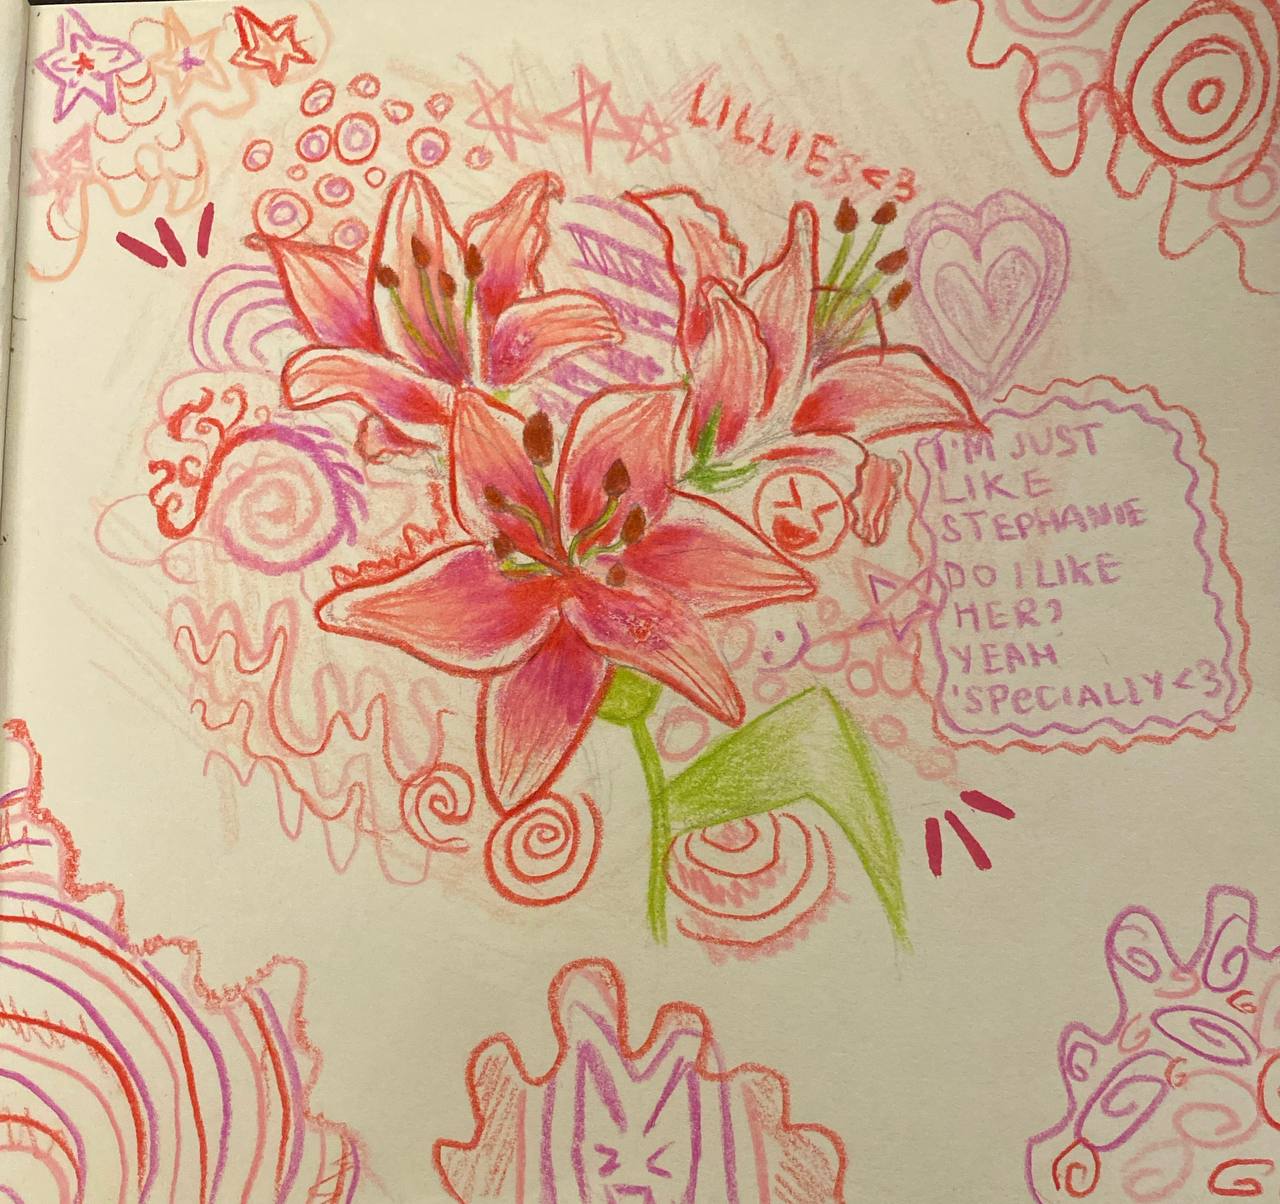 LILLIES<3
I'M JUST
LIKE
STEPHANIE
DO I LIKE
HER?
YEAH
'SPECIALLY<3